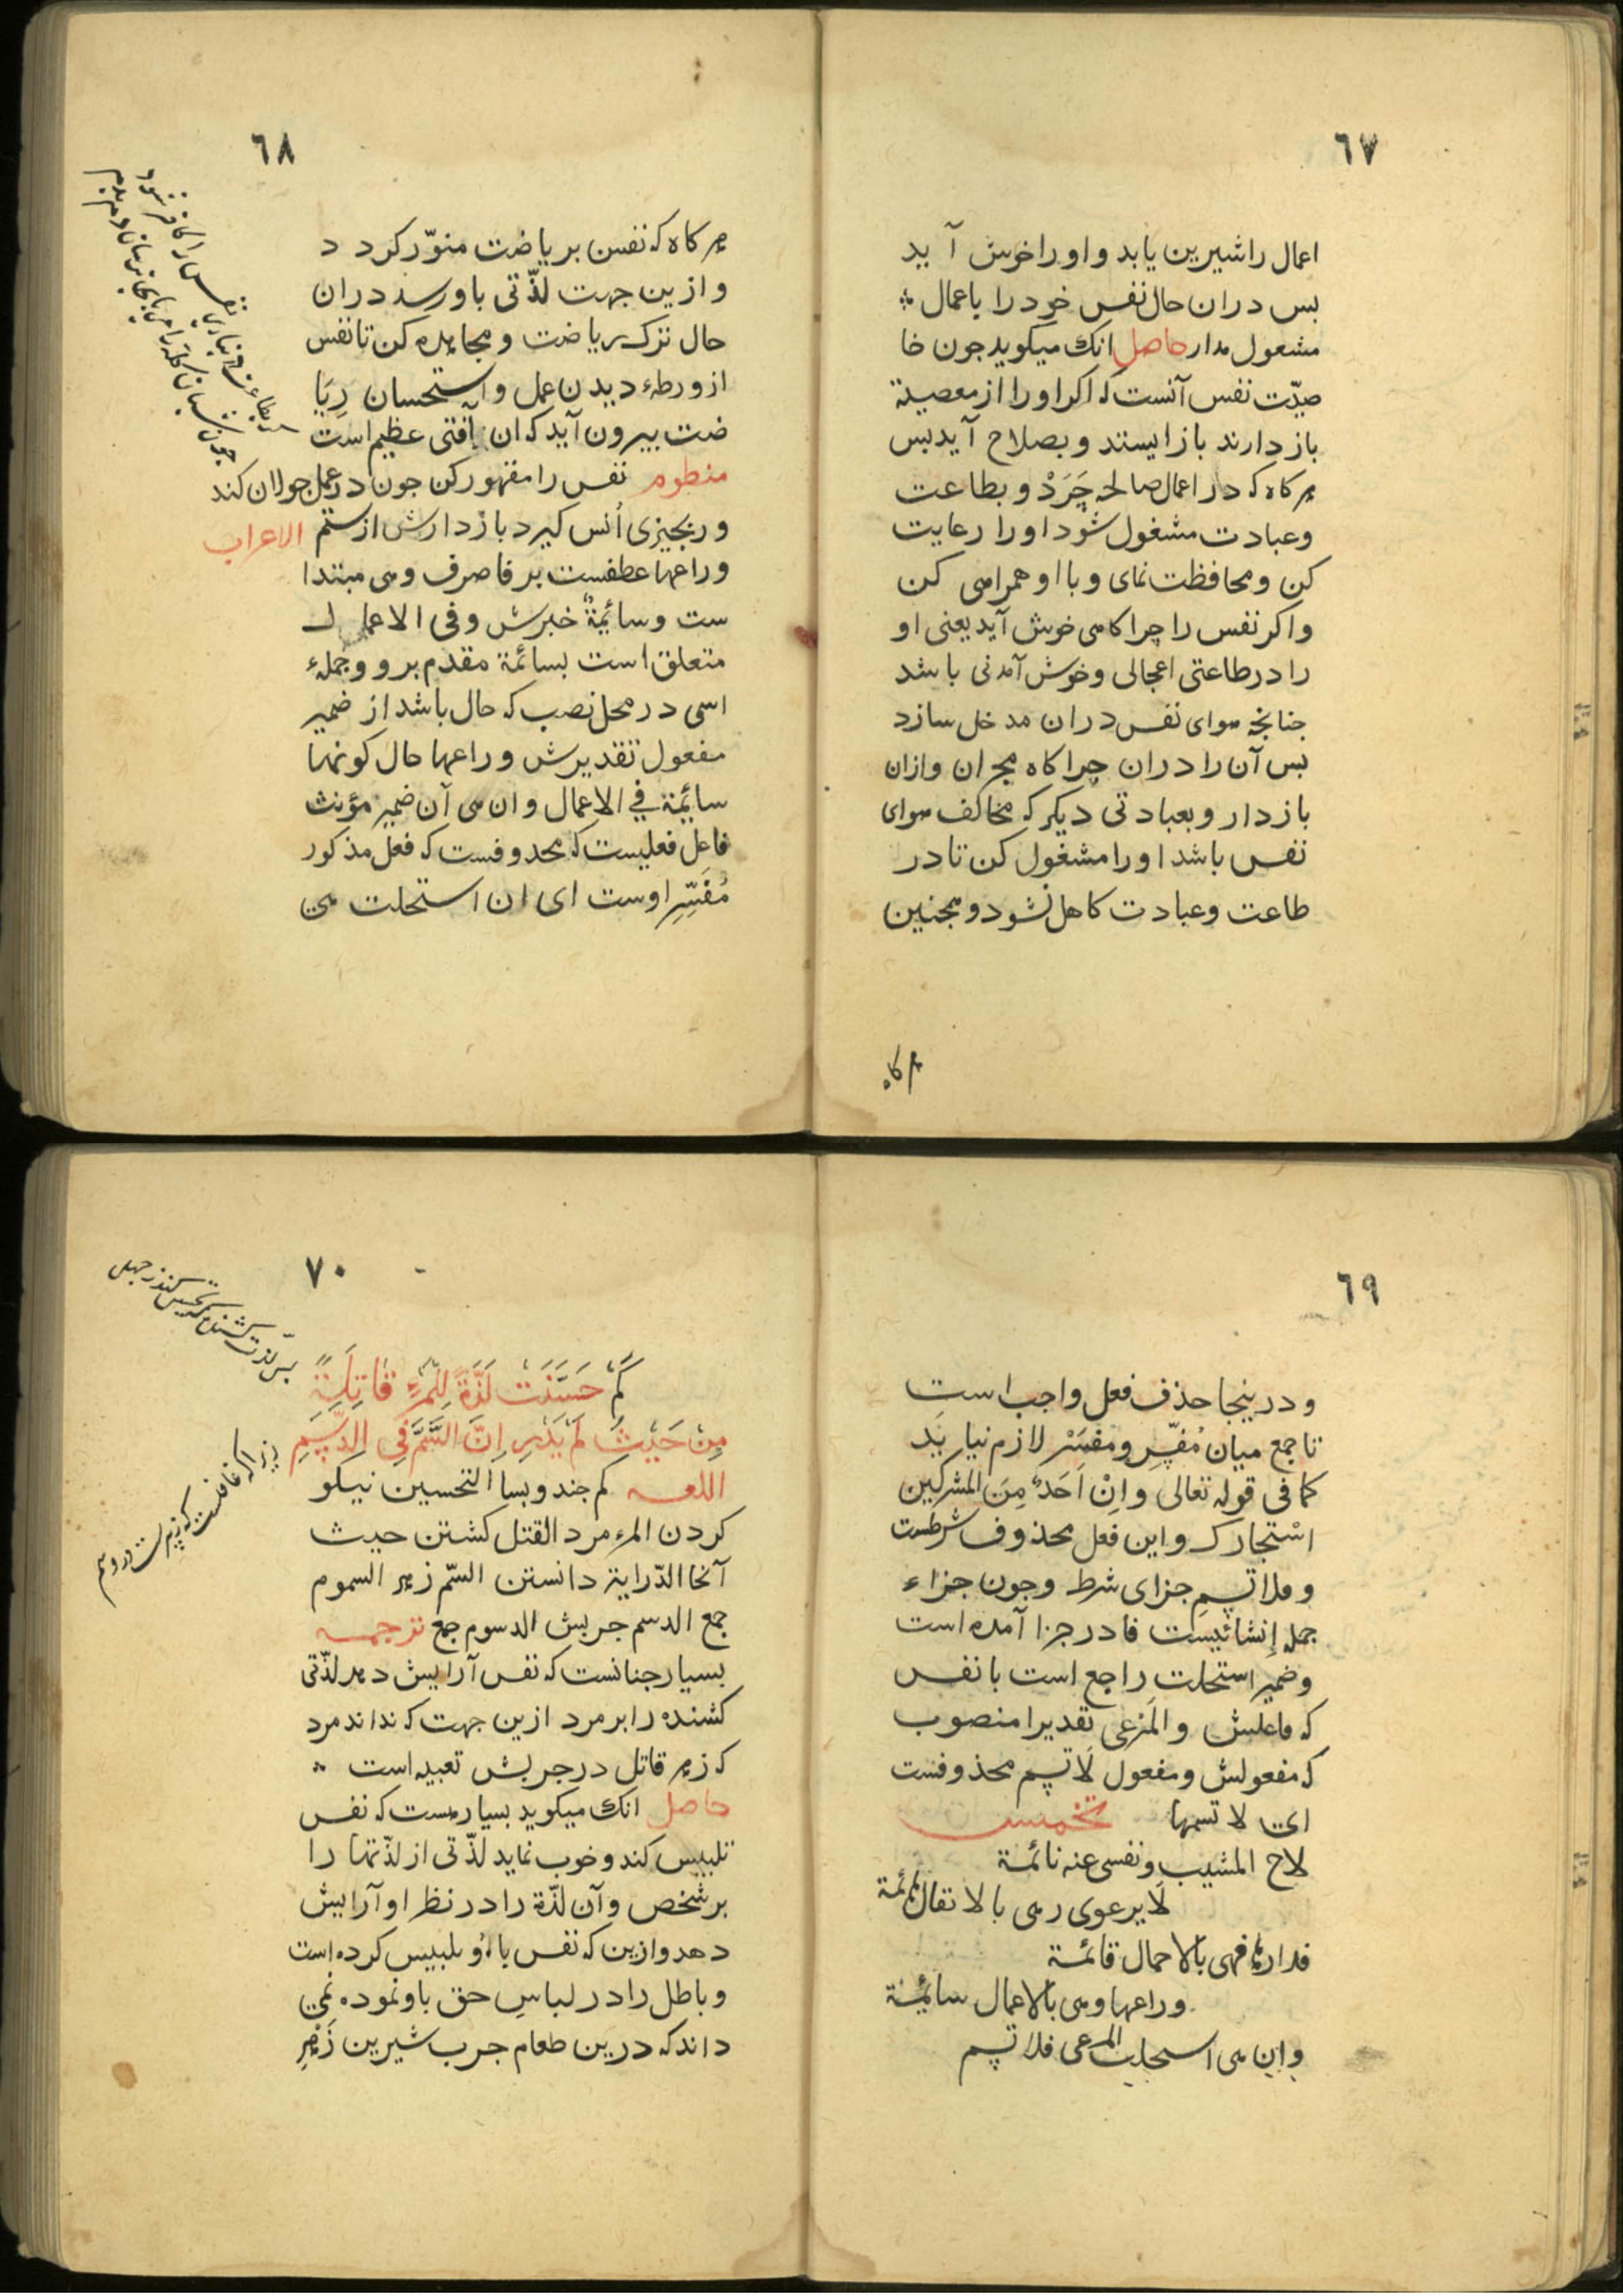 ٦٧
اعمال را شیرین یابد و او را خوش آید
بس دران حال نفس خود را باعمال
مشغول مدار حاصل انک میکوید جون خا
صیّت نفس آنست که اکر او را از معصیة
باز دارند باز ایستند و بصلاح آید بس
هر کاه که در اعمال صالحه چَرَدْ و بطاعت
و عبادت مشغول شود او را رعایت
کن و محافظت نمای و با او همراهی کن
و اکر نفس را چراکاهی خوش آید یعنی او
را در طاعتی اعجالی و خوش آمدنی باشد
جنانجه هوای نفس دران مدخل سازد
بس آن را دران چراکاه مجران و ازان
باز دار و بعبادتی دیکر که مخالف هوای
نفس باشد او را مشغول کن تا در
طاعت و عبادت کاهل نشود و همجنین
هر کاه
٦٨
هر کاه که نفس بریاضت منوّر کرد د
و ازین جهت لذّتی باو رسد دران
حال ترک ریاضت و مجاهده کن تا نفس
از ورطهٔ دیدن عمل و استحسان رِیَا
ضت بیرون آید که ان آفتی عظیم است
منظوم نفس را مقهور کن جون در عمل جولان کند
ور بجیزی اُنس کیرد باز دارش از ستم الاعراب
وراعها عطفست بر فاصرف و هی مبتدا
ست و سائمةٌ خبرش و فی الاعمال
متعلق است بسائمة مقدم برو و جملهٔ
اسمی در محل نصب که حال باشد از ضمیر
مفعول تقدیرش وراعها حال کونها
سائمة في الاعمال و ان هی آن ضمیر مؤنث
فاعل فعلیست که محدوفست که فعل مذکور
مُفَسِّرِ اوست ای ان استحلت هی
٦٩
و درینجا حذف فعل واجب است
تا جمع میان مُفسِّر و مفسَّرْ لازم نیا یَد
کما فی قوله تعالی وَاِنْ اَحَدٌ مِنَ المشرکین
اسْتجارک و این فعل محذوف شرطست
و فلا تُسِمِ جزای شرط و جون جزاء
جمله إنشائیست فا در جزا آمده است
و ضمیر استحلت راجع است با نفس
که فاعلش و المَرعی تقدیرا منصوب
که مفعولش و مفعول لَا تسم محذوفست
ای لا تسمها تخمیس
لاح المشیب و نفسی عنه نائمة
لَا یرعوی و هی بالاثقال
فدارها فهی بالاحمال قائمة
وراعها و هی بالاعمال سائمة
وان هی استحلت المرعی فلا تسم
٧٠
کَمْ حَسَّنَتْ لَذَّةً لِلْمَرْءِ قَاتِلَةً
مِنْ حَیْثُ لَمْ یَدْرِ اِنَّ السَّمَّ فِی الدَّسَمِ
اللغه کم جند و بسا التحسین نیکو
کردن المرء مرد القتل کشتن حیث
آنجا الدّرایة دانستن السّم زهر السموم
جمع الدسم جربش الدسوم جمع ترجمه
بسیار جنانست که نفس آرایش دهد لذّتی
کشنده را بر مرد ازین جهت که نداند مرد
که زهر قاتل در جربش تعبیه است
حاصل انک میکوید بسیار هست که نفس
تلبیس کند و خوب نماید لذّتی از لذّتها را
بر شخص و آن لذّة را در نظر او آرایش
دهد و ازین که نفس با اُو تلبیس کرده است
و باطل را در لباسِ حق باو نموده نمی
داند که درین طعام جرب شیرین زَهْرِ